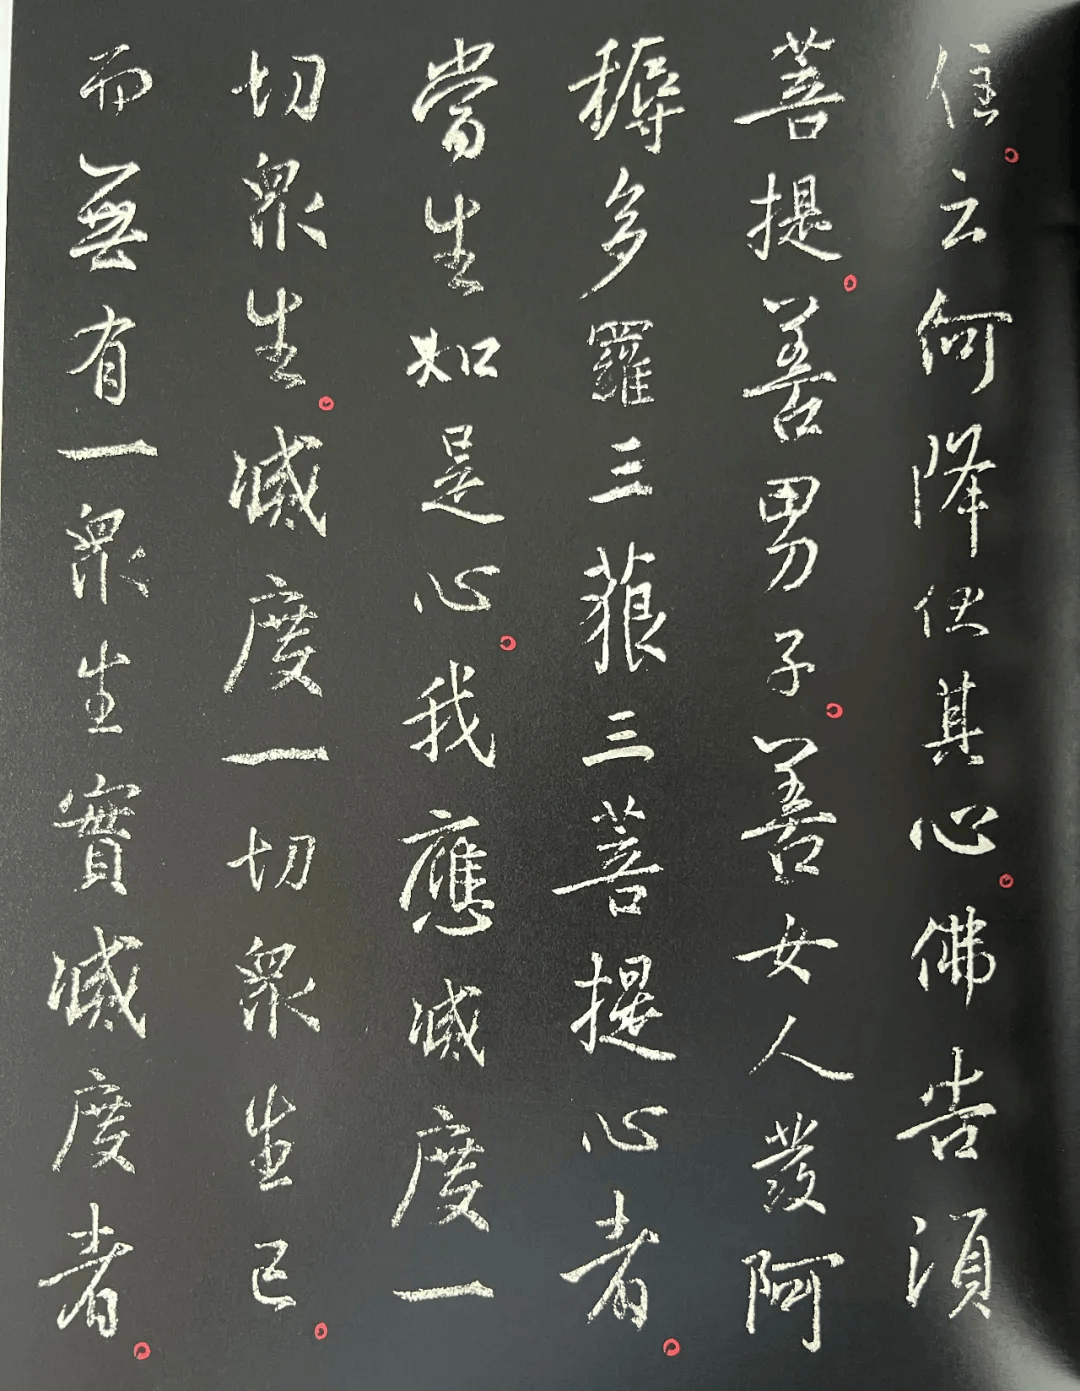 住。云何降伏其心。佛告須
菩提。善男子。善女人發阿
耨多羅三藐三菩提心者。
當生如是心。我應滅度一
切眾生。滅度一切眾生已。
而無有一眾生實滅度者。